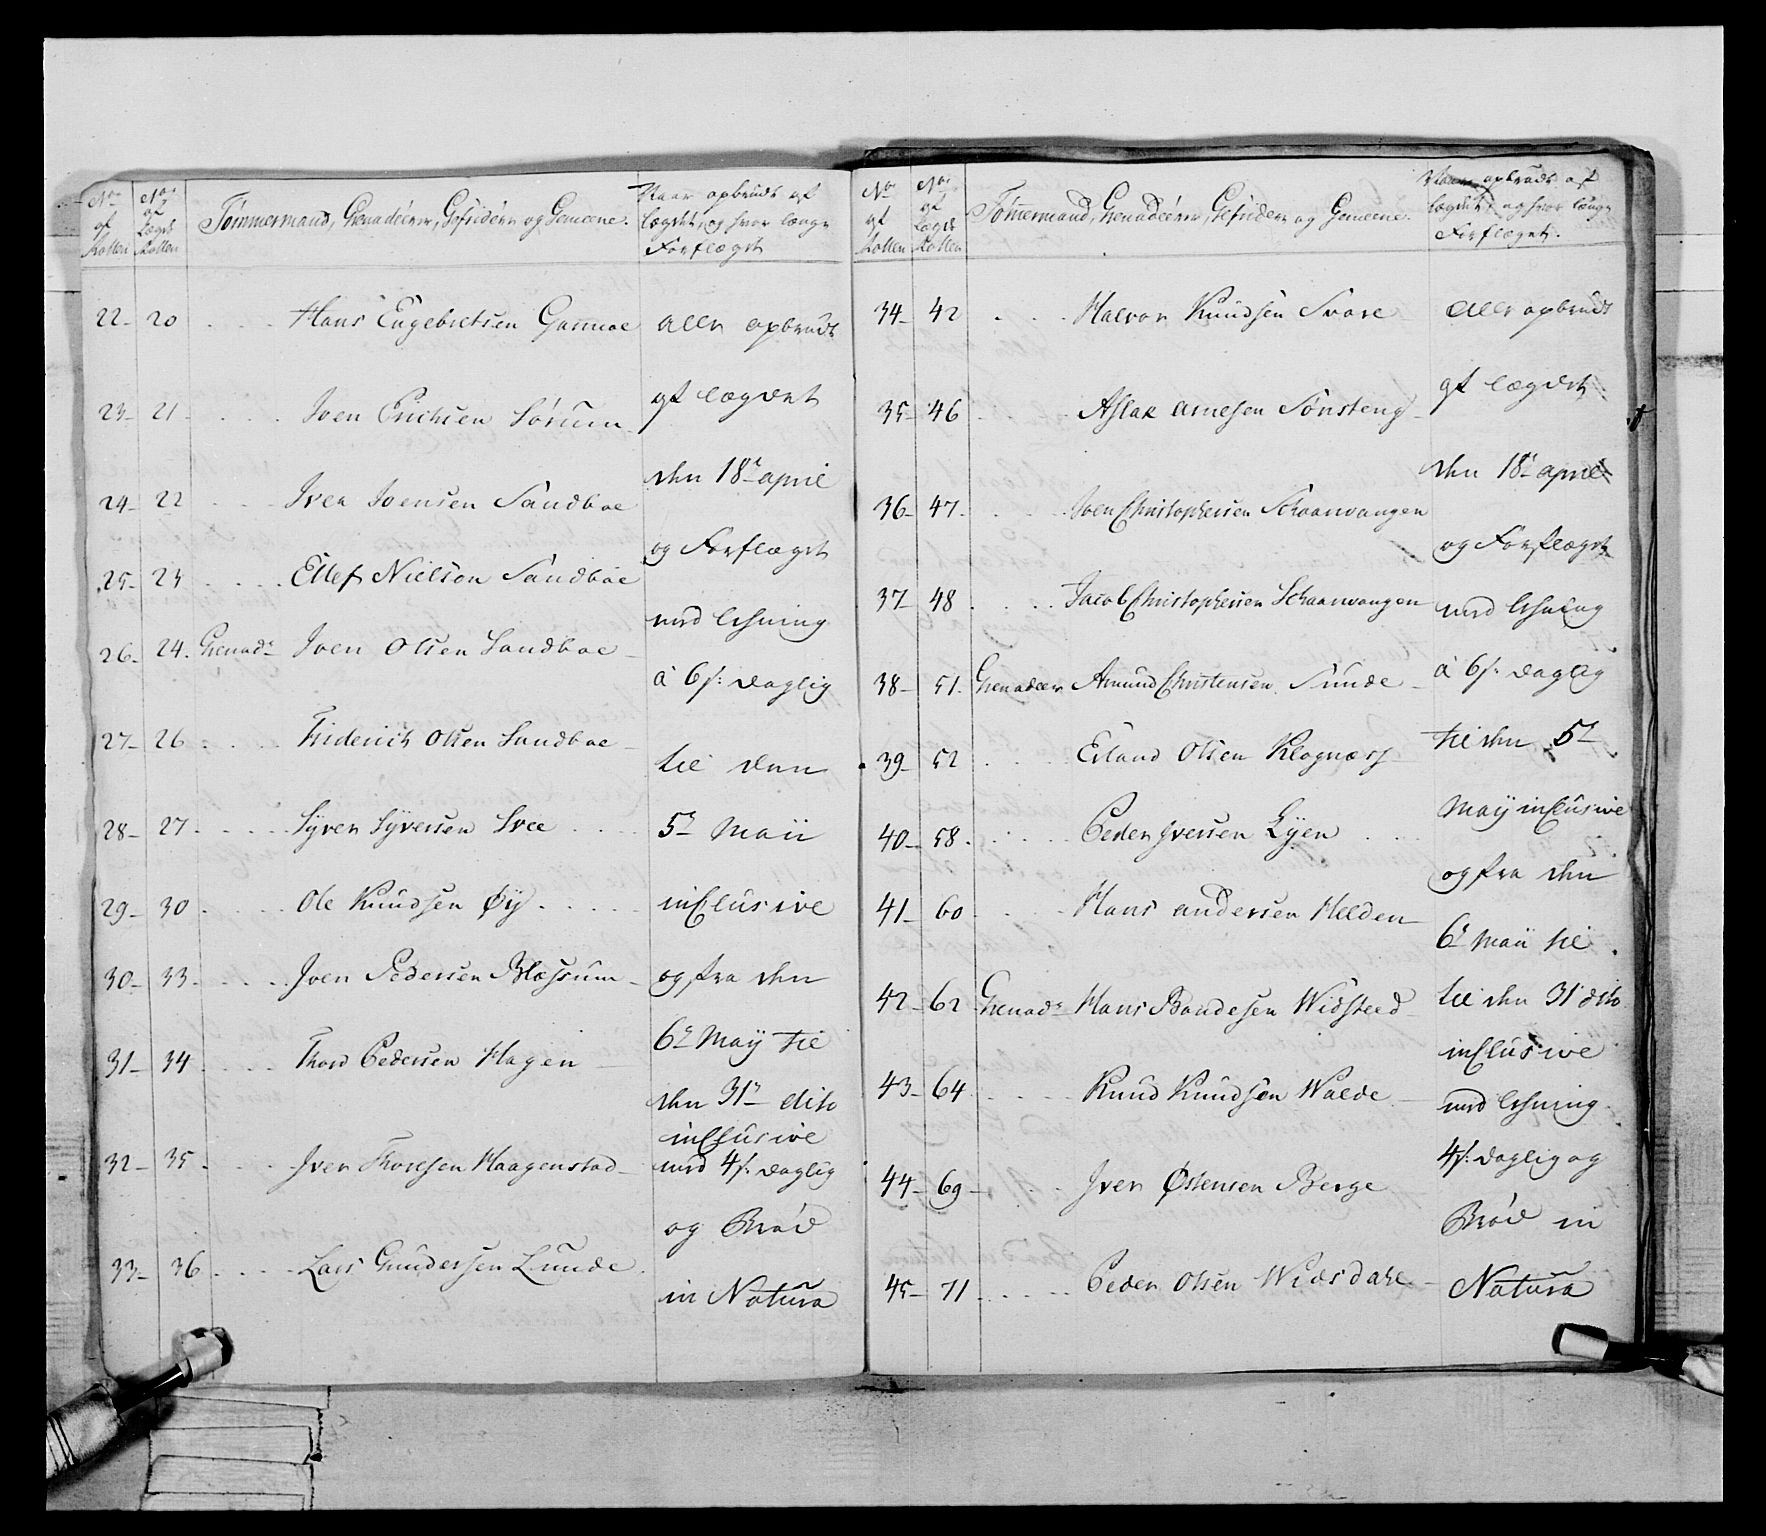 No af Rollen
No af Lægds Rollen
Tømmermand, Grenadeérer, Gefridere og Gemeene.
Naar opbrudt af
lægdet, og hvor længe
Forflæget
22 - 20 Hans Engebretsen Gammoe
alle opbrudt
23 - 21 Joen Erichsen Sørum
af lægdet
24 - 22 Iver Joensen Sandboe
den 18de april
25 - 23 Ellef Nielsen Sandboe
og Forflæget
26 - 24. Grenadr Joen Olsen Sandboe
med lehning
à 6 s: daglig
27 - 26 Friderich Olsen Sandboe
til den
28 - 27 Syver Syversen Svee
5te Maii
29 - 30 Ole Knudsen Øy
inclusive
30 - 33 Joen Pedersen Blessum
og fra den
31 - 34 Thord Pedersen Hagen
6te Maÿ til
den 31te dito
inclusive
32 - 35 Iver Thoresen Haagenstad
med 4 s: daglig
og Brød
33 - 36 Lars Gundersen Lunde
in Natura
No af Rollen
No af Lægds Rollen
Tømmermand, Grenadeérer, Gefridere og Gemeene.
Naar opbrudt af
lægdet, og hvor længe
Forflæget.
34 - 42 Halvor Knudsen Svare
alle opbrudt
35 - 46 Aslak Arnesen Sønsteng
af lægdet
36 - 47 Joen Christophersen Schaarvangen
den 18de april
og Forflæget
37 - 48 Jacob Christophersen Schaarvangen
med lehning
38 - 51. Grenadeer Amund Christensen Sunde
à 6 s: daglig
39 - 52 Erland Olsen Klognæs
til den 5te
40 - 58 Peder Iversen Lÿen
Maÿ inclusive
og fra den
41 - 60 Hans Andersen Helden
6te Maii til
42 - 62 Grenadr Hans Baardesen Widsteed
til den 31 dito
inclusive
43 - 64 Knud Knudsen Walde
med lehning
44 - 69 Iver Østensen Berge
4 s: daglig og
Brød in
45 - 71 Peder Olsen Widsdahl
Natura